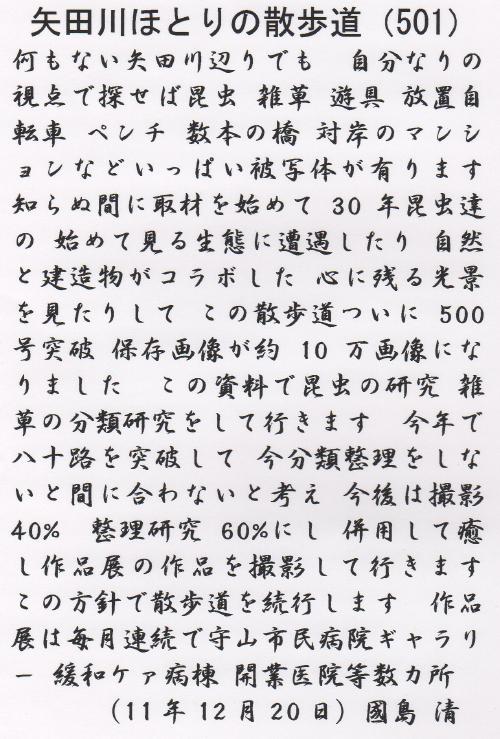 矢田川ほとりの散歩道（501）
何もない矢田川辺りでも　自分なりの
視点で探せば昆虫 雑草 遊具 放置自
転車 ペンチ 数本の橋 対岸のマンシ
ョンなどいっぱい被写体が有ります
知らぬ間に取材を始めて 30 年昆虫達
の 始めて見る生態に遭遇したり 自然
と建造物がコラボした 心に残る光景
を見たりして この散歩道ついに 500
号突破 保存画像が約 10 万画像にな
りました　この資料で昆虫の研究 雑
草の分類研究をして行きます　今年で
八十路を突破して 今分類整理をしな
いと間に合わないと考え 今後は撮影
40%　整理研究 60%にし 併用して癒
し作品展の作品を撮影して行きます
この方針で散歩道を続行します　作品
展は毎月連続で守山市民病院ギャラリ
ー 緩和ケァ病棟 開業医院等数カ所
（11 年 12 月 20 日）國島 清